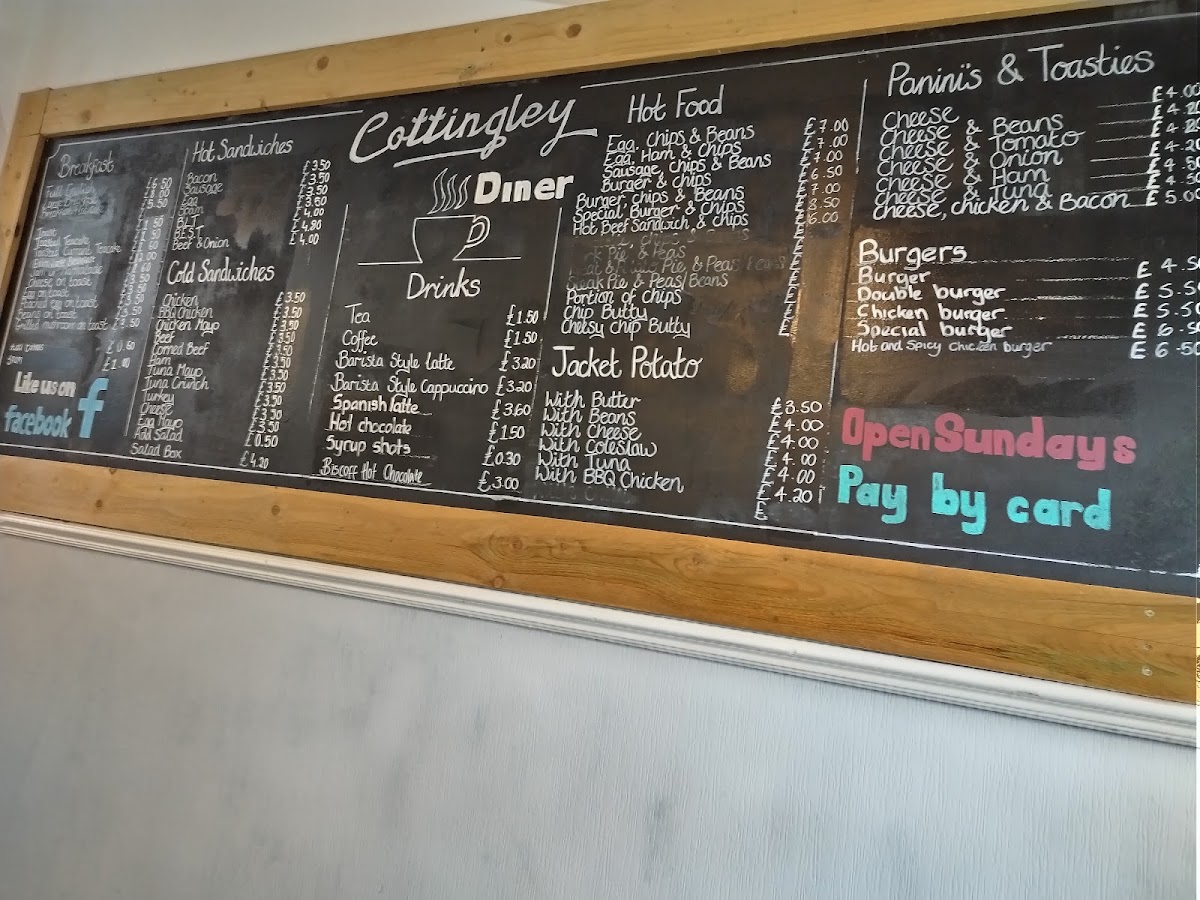 Cottingley
Diner
Breakfast
Toasted Teacake
Cheese on toast
Egg on toast
Beans on toast
Like us on
facebook f
Hot Sandwiches
Bacon £3.50
Sausage £3.50
Egg £3.50
Spam
B.L.T £4.00
B.E.S.T
Beef & Onion £4.00
Cold Sandwiches
Chicken £3.50
BBQ Chicken £3.50
Chicken Mayo £3.50
Beef £3.50
Corned Beef £3.50
Ham £3.50
Tuna Mayo £3.50
Tuna Crunch £3.50
Turkey £3.50
Cheese £3.50
Egg Mayo £3.50
Add Salad £0.50
Salad Box £4.20
Drinks
Tea £1.50
Coffee £1.50
Barista Style latte £3.20
Barista Style Cappuccino £3.20
Spanish latte £3.60
Hot chocolate £1.50
Syrup shots £0.30
Biscoff Hot Chocolate £3.00
Hot Food
Egg, chips & Beans £7.00
Egg, Ham & Chips £7.00
Sausage, chips & Beans £7.00
Burger & chips £6.50
Burger, chips & Beans £7.00
Special Burger & Chips £8.50
Hot Beef Sandwich & chips £6.00
Pie & Peas
Pie & Peas/Beans
Steak Pie & Peas/Beans
Portion of chips £
Chip Butty £
Cheesy chip Butty £
Jacket Potato
With Butter £3.50
With Beans £4.00
With Cheese £4.00
With Coleslaw £4.00
With Tuna £4.00
With BBQ Chicken £4.20
£
Panini's & Toasties
Cheese £4.00
Cheese & Beans £4.20
Cheese & Tomato £4.20
Cheese & Onion £4.20
Cheese & Ham £4.50
Cheese & Tuna £4.50
Cheese, chicken & Bacon £5.00
Burgers
Burger £4.50
Double burger £5.50
Chicken burger £5.50
Special burger £6.50
Hot and Spicy Chicken burger £6.50
Open Sundays
Pay by card